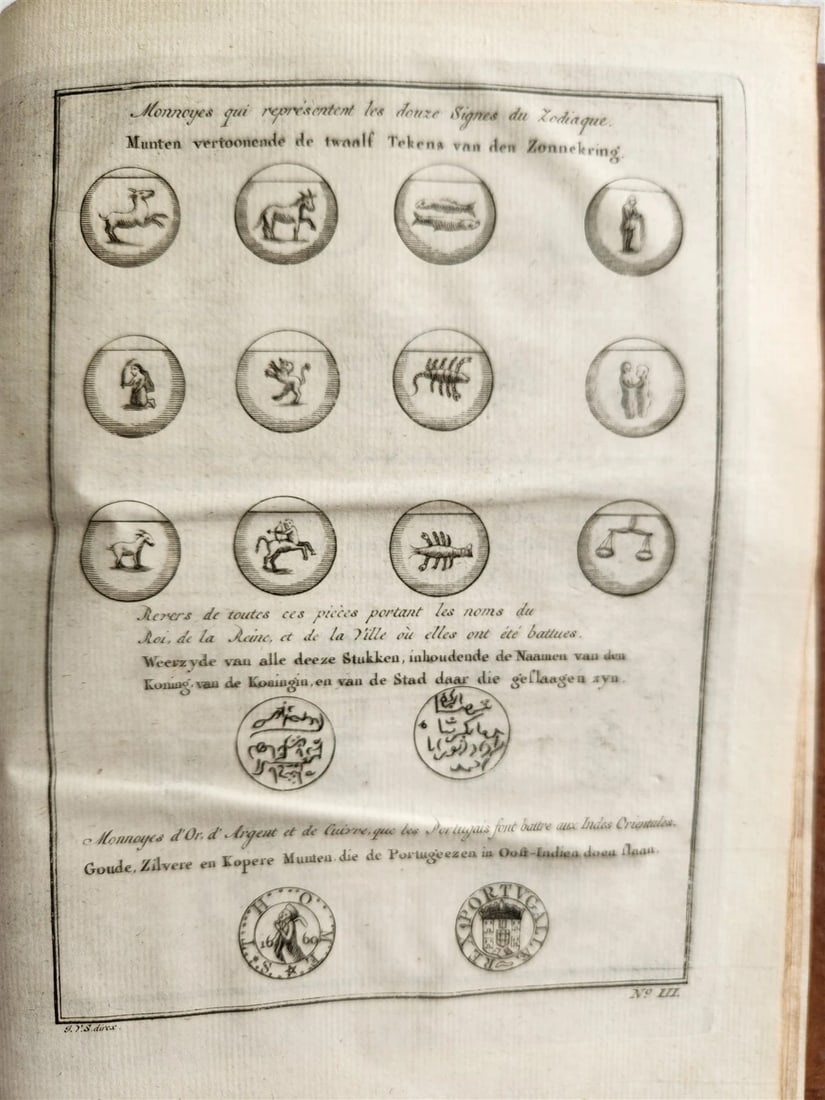 Monnoyes qui représentent les douze Signes du Zodiaque.
Munten vertoonende de twaalf Tekens van den Zonnekring.
Revers de toutes ces pièces portant les noms du
Roi, de la Reine, et de la Ville où elles ont été battues.
Weerzyde van alle deeze Stukken, inhoudende de Naamen van den
Koning, van de Koningin, en van de Stad daar die geslaagen zyn.
Monnoyes d'Or, d'Argent et de Cuivre, que les Portugais font battre aux Indes Orientales.
Goude, Zilvere en Kopere Munten, die de Portugeezen in Oost-Indien doen slaan.
S. THOME
1660
REX PORTVGALLIÆ
Nº LII.
J.V.S. direx.